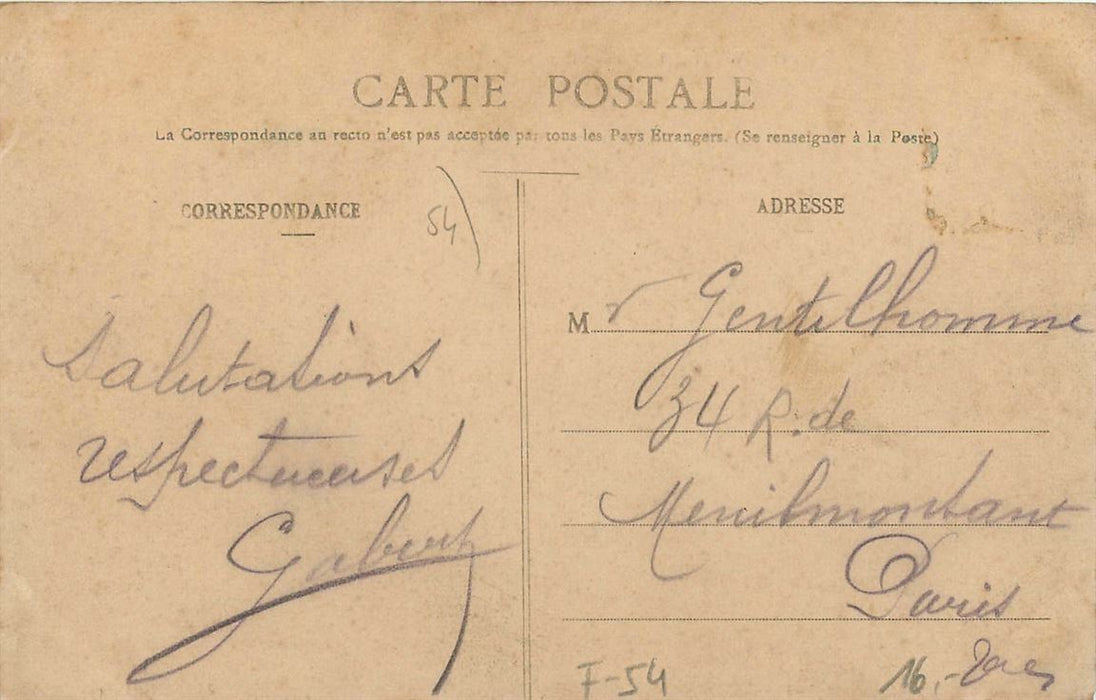 CARTE POSTALE
La Correspondance au recto n'est pas acceptée par tous les Pays Étrangers. (Se renseigner à la Poste)
CORRESPONDANCE
54
Salutations
respectueuses
ADRESSE
Mr Gentilhomme
34 R. de
Menilmontant
Paris
F-54
16.-